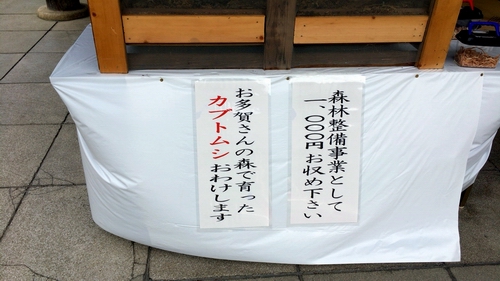 森林整備事業として
一、〇〇〇円お収め下さい
お多賀さんの森で育った
カブトムシおわけします